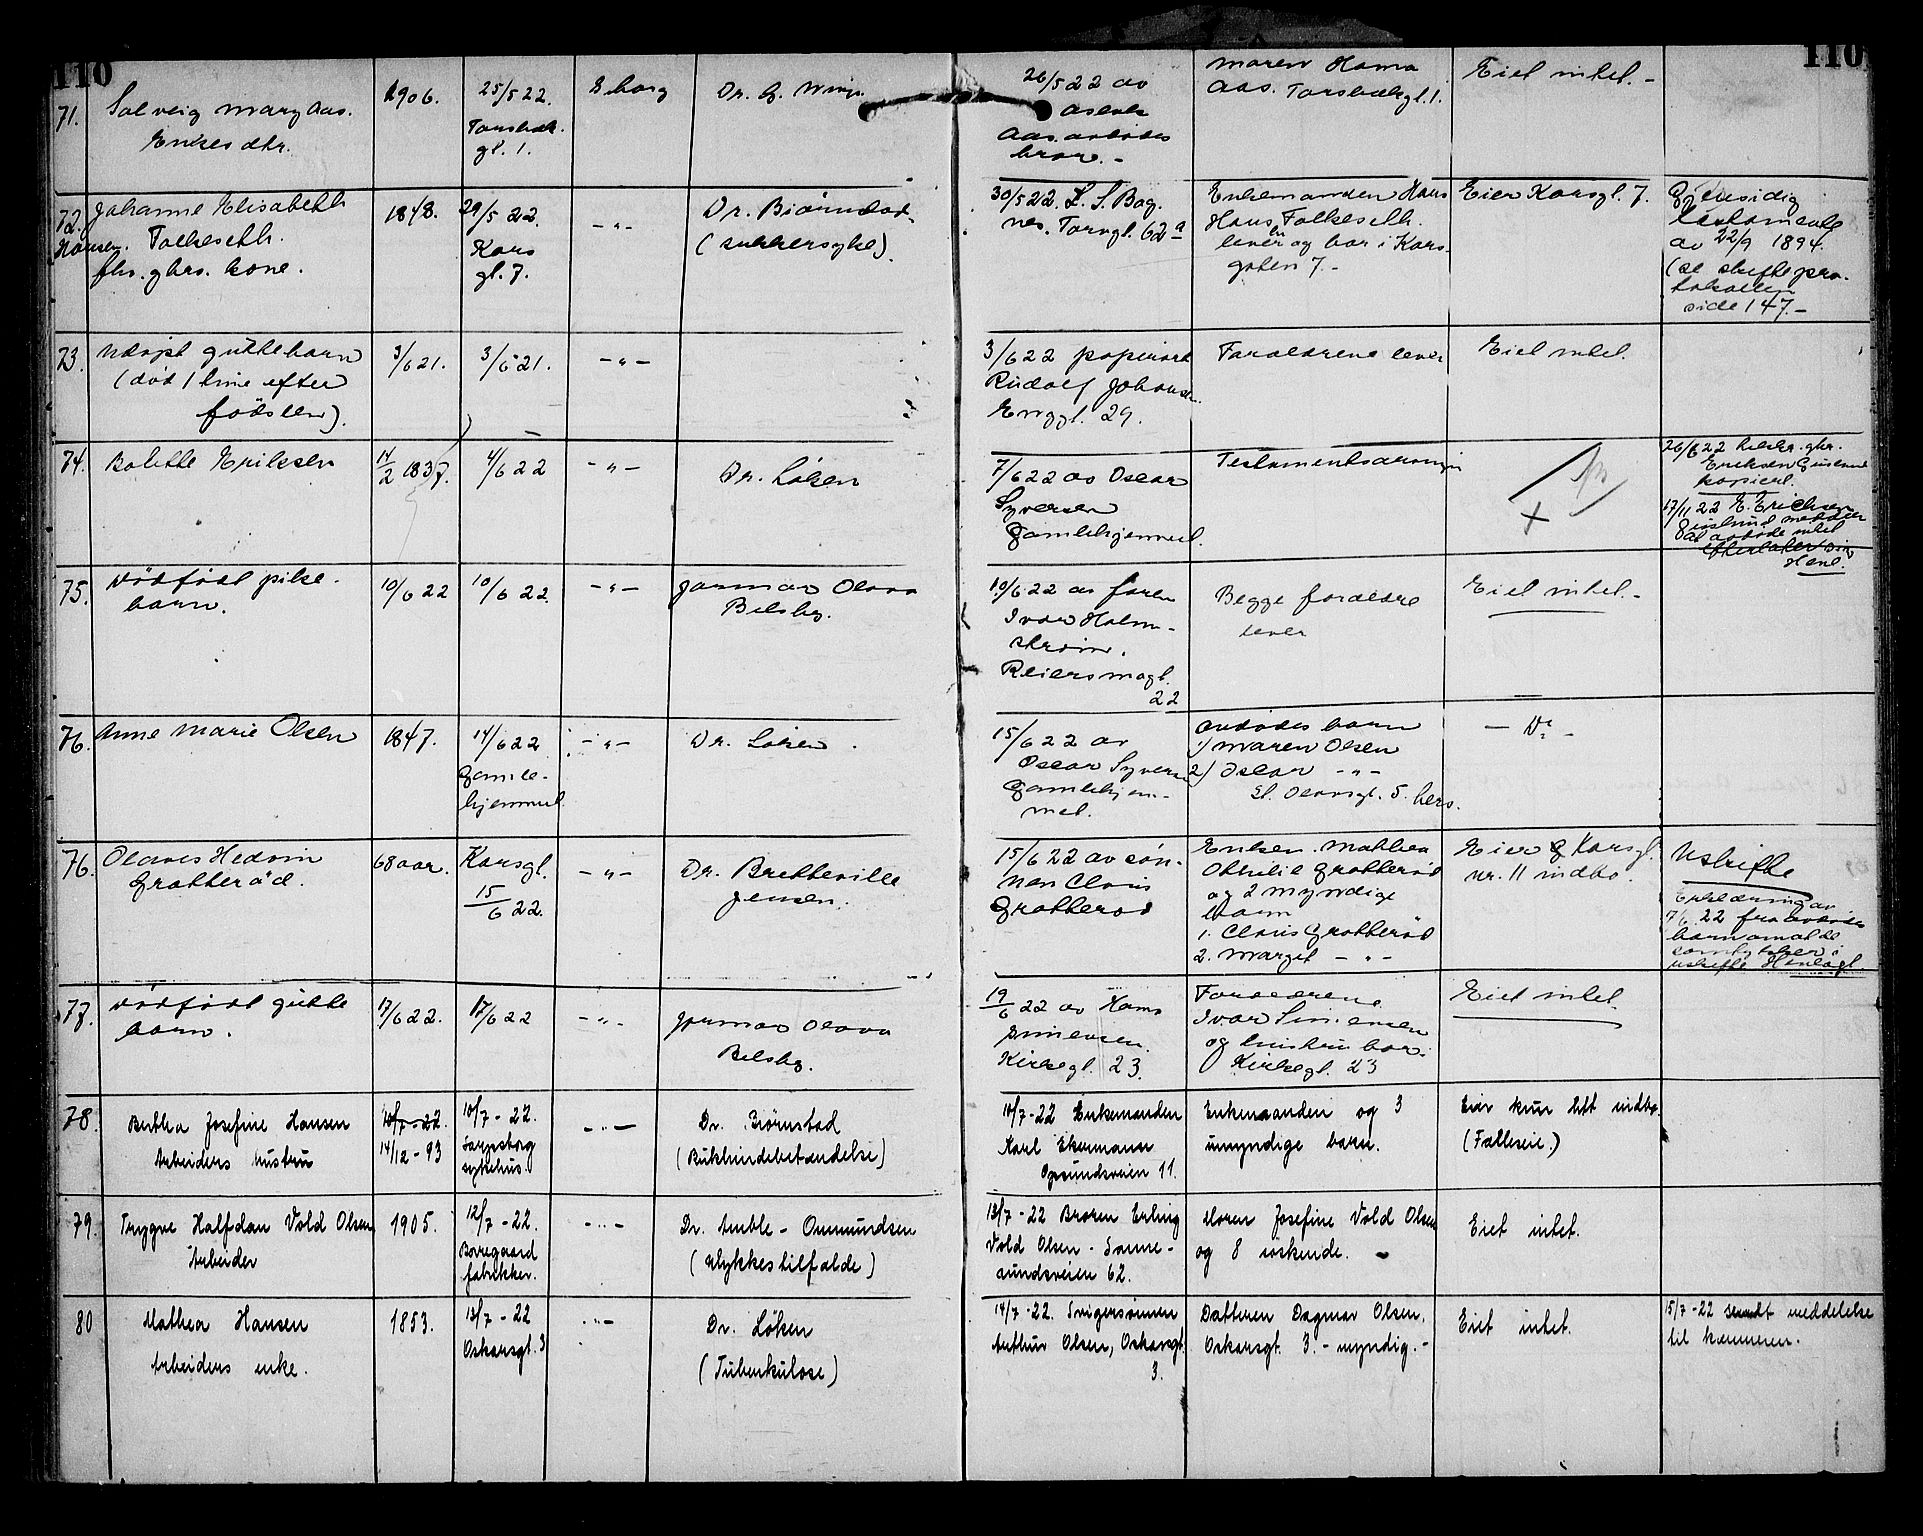 110
110
71.
Solveig Mary Aas.
Enkes dtr.
1906.
25/5 22.
Torsbæk.
gt. 1.
S.borg
Dr. G. Winge
26/5 22 av
Aslak
Aas. avdødes
bror. -
Moren Hama
Aas. Torsbækgt. 1.
Eiet intet. -
72.
Johanne Elisabeth
Hansen. Folkeseth.
fhv. gbrs. kone.
1848.
29/5 22.
Kors
gt. 7.
- " -
Dr. Biørnstad.
(sukkersyke).
30/5 22. L. S. Bag.
nes. Torvgt. 62a
Enkemanden Hans
Hans Folkeseth.
lever og bor i Kors-
gaten 7. -
Eier Korsgt. 7.
Gjensidig
testamente
av 22/9 1894.
(se skiftepro-
tokollen
side 147. -
73.
Udøpt guttebarn
(død 1 time efter
fødslen).
3/6 21.
3/6 21.
- " -
3/6 22 papirarb
Rudolf Johansen.
Enggt. 29.
Forældrene lever
Eiet intet.
74.
Bolette Eriksen
14/2 1837.
4/6 22
- " -
Dr. Løken
7/6 22 av Oscar
Syversen
Gamlehjemmet.
Testamentsarving
+
26/6 22 tilskr. gbr.
Eriksen Guslund
kopiert.
17/11 22 E. Erichsen
Guslund meddeler
at avdøde intet
efterlater sig
Henl.
75.
Dødfødt pike-
barn.
10/6 22
10/6 22
- " -
Jormor Olava
Bilsby.
10/6 22 av faren
Ivar Holm-
strøm.
Reiersmogt.
22
Begge forældre
lever
Eiet intet. -
76.
Anne Marie Olsen
1847.
14/6 22
Gamle-
hjemmet
- " -
Dr. Løken
15/6 22 av
Oscar Syversen
Gamlehjem-
met.
Avdødes barn
1) Maren Olsen
2) Oscar - " -
St. Olavsgt. 5. hers.
- Do -
76.
Olaves Hedvin
Grotterød.
68 aar.
Korsgt.
15/6 22.
- " -
Dr. Bretteville
Jensen.
15/6 22 av søn-
nen Claus
Grotterød
Enken Mathea
Othilie Grotterød
og 2 myndige
barn
1. Claus Grotterød
2. Margit - " -
Eier Korsgt.
nr. 11 indbo.
Uskifte
Erklæring av
7/6 22 fra avdødes
barn om at de
samtykker i
uskifte Henlagt
77.
Dødfødt gutte
barn.
17/6 22.
17/6 22
- " -
Jormor Olava
Bilsby.
19/6 22 av Hans
Simensen.
Kirkegt. 23.
Forældrene
Ivar Simensen
og hustru bor i
Kirkegt. 23
Eiet intet.
78.
Bertha Josefine Hansen
Arbeiders hustru
10/7-22.
14/12-93
10/7-22.
Sarpsborg
sykehus.
- " -
Dr. Biørnstad
(Bukhindebetændelse)
10/7-22 Enkemanden
Karl Ekermann
Opsundsveien 11.
Enkemanden og 3
umyndige barn.
Eier kun litt indbo.
(Fælleseie.)
79.
Trygve Halfdan Vold Olsen
Arbeider
1905.
12/7-22.
Borregaard
fabrikker.
- " -
Dr. Amble - Ommundsen
(ulykkestilfælde)
13/7-22 Broren Erling
Vold Olsen - Sanne-
sundsveien 62.
Moren Josefine Vold Olsen
og 8 søskende.
Eiet intet.
80
Mathea Hansen
Arbeiders enke.
1853.
13/7-22
Oskarsgt. 3
- " -
Dr. Løken
(Tuberkulose)
14/7-22. Svigersønnen
Arthur Olsen, Oskarsgt.
3.
Datteren Dagmar Olsen.
Oskarsgt. 3. - myndig. -
Eiet intet.
15/7-22 sendt meddelelse
til kæmneren.